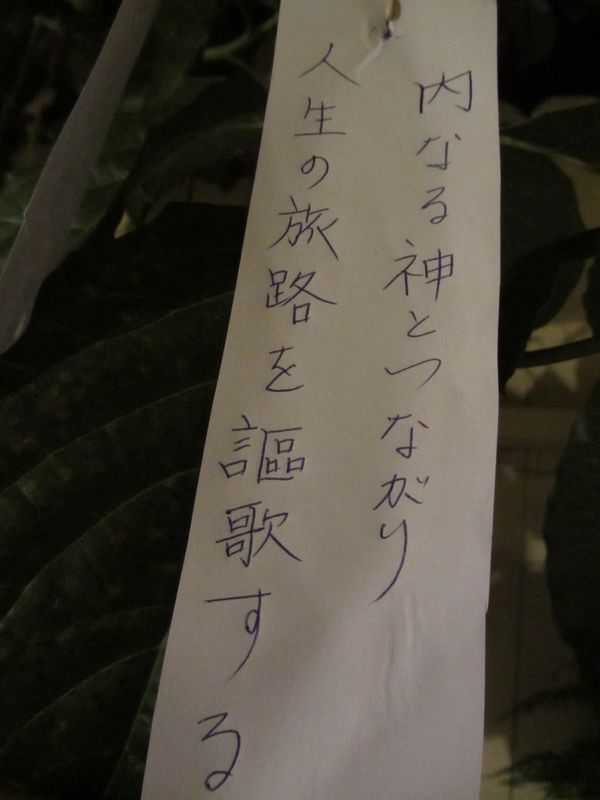 内なる神とつながり
人生の旅路を謳歌する